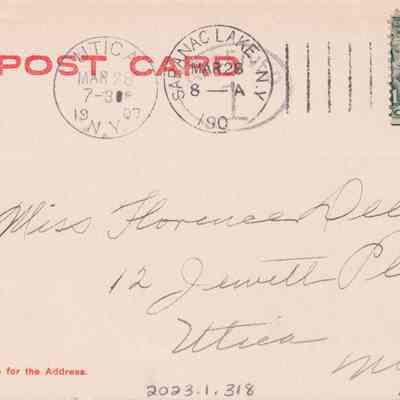 POST CARD
UTICA
MAR 28
7-30P
19 07
N.Y.
SARANAC LAKE, N.Y.
MAR 28
8 — A
190
Miss Florence Del
12 Jewett Pl
Utica
for the Address.
2023.1.318